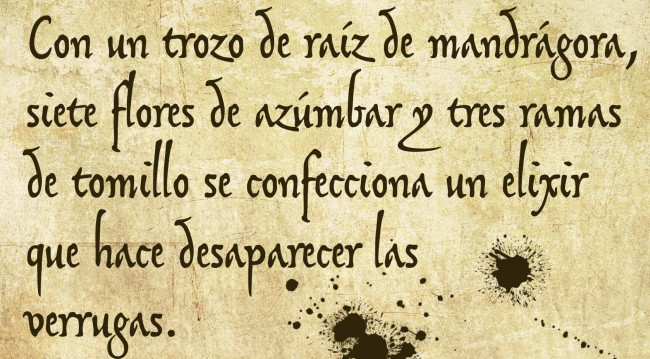 Con un trozo de raíz de mandrágora,
siete flores de azúmbar y tres ramas
de tomillo se confecciona un elixir
que hace desaparecer las
verrugas.